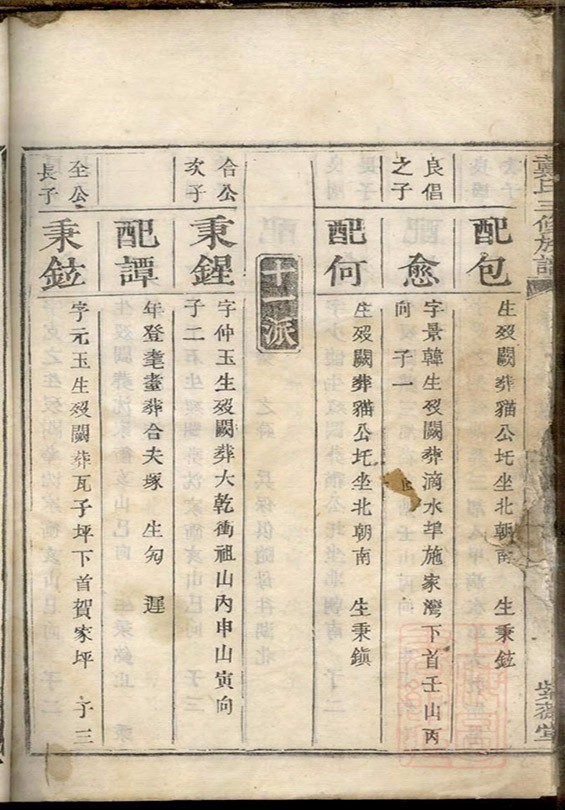 氏三修族譜
紫薇堂
配包
生歿闕葬貓公圫坐北朝南 生秉鉉
良倡之子
愈
字景韓生歿闕葬滴水埠施家灣下首壬山丙向 子一
配何
生歿闕葬貓公圫坐北朝南 生秉鎮
十一派
合公次子
秉鍟
字仲玉生歿闕葬大乾衝祖山內申山寅向 子二
配譚
年登耄耋葬合夫塚 生匇 遲
全公長子
秉鉉
字元玉生歿闕葬瓦子坪下首賀家坪 子三